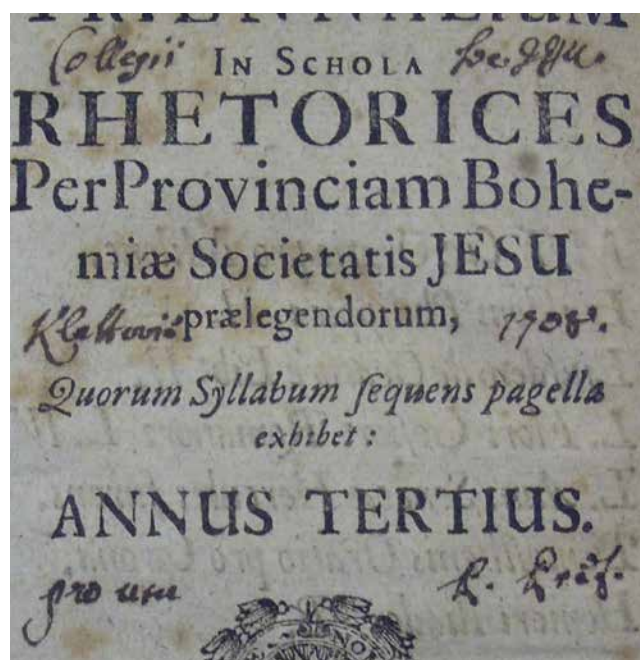 TRIENNALIUM
Collegii IN SCHOLA
RHETORICES
Per Provinciam Bohe-
miæ Societatis JESU
Klattoviæ prælegendorum, 1708.
Quorum Syllabum ſequens pagella
exhibet:
ANNUS TERTIUS.
pro usu